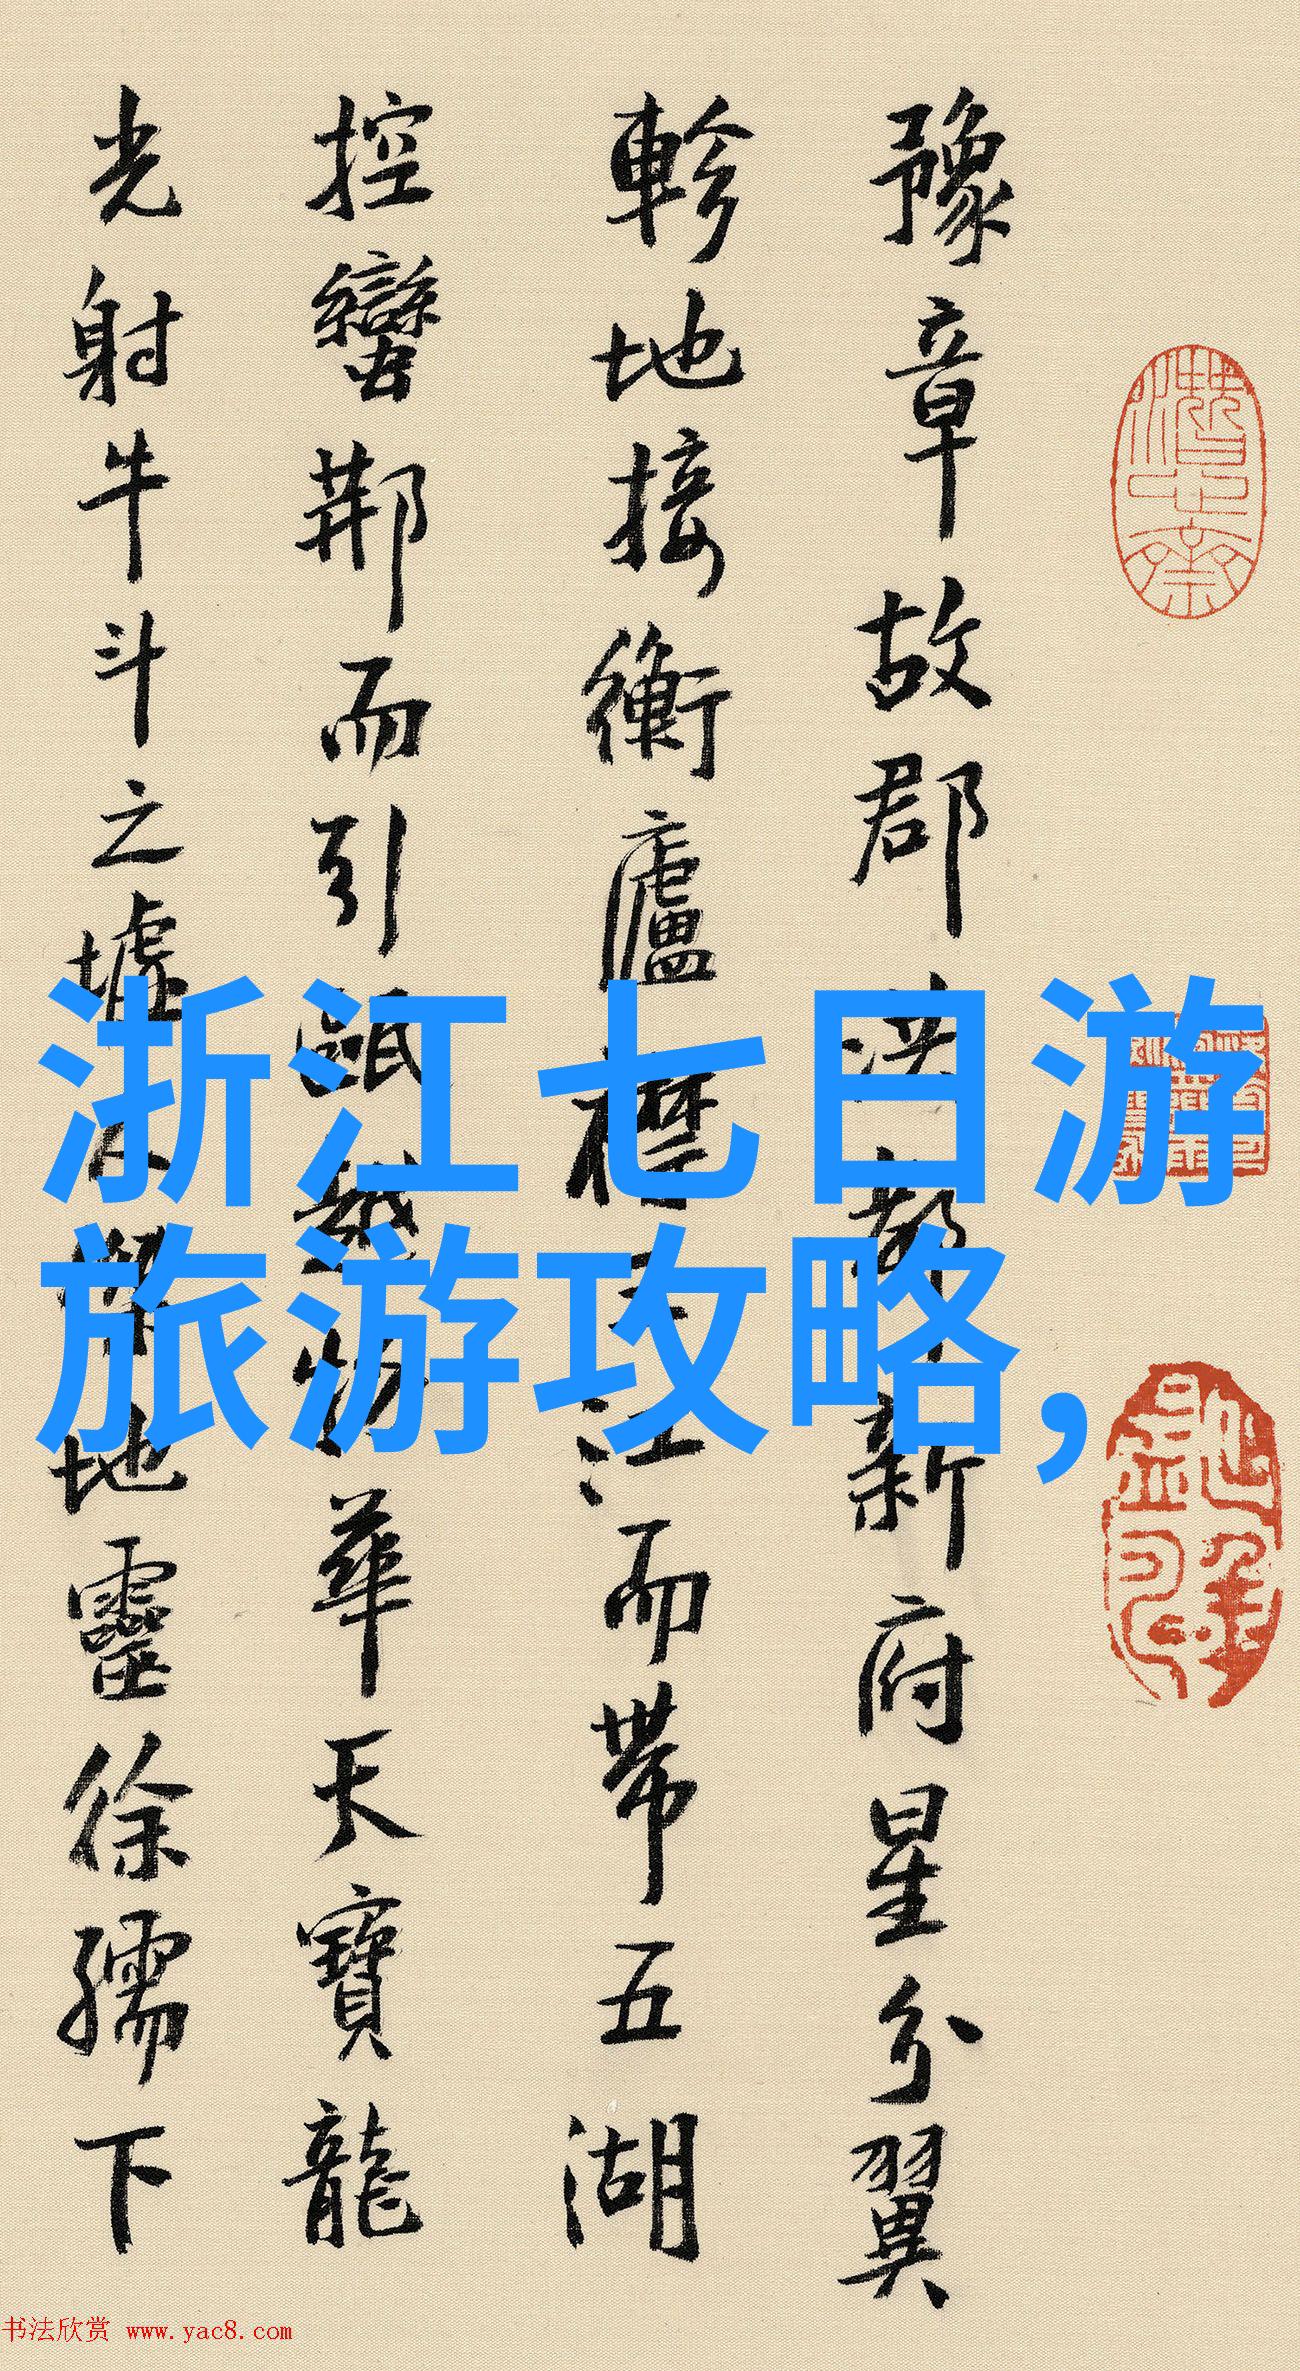 豫章故郡洪都新府星分翼
軫地接衡廬襟三江而帶五湖
控蠻荊而引甌越物華天寶龍
光射牛斗之墟人傑地靈徐孺下
浙江七日游
旅游攻略,
书法欣赏 www.yac8.com